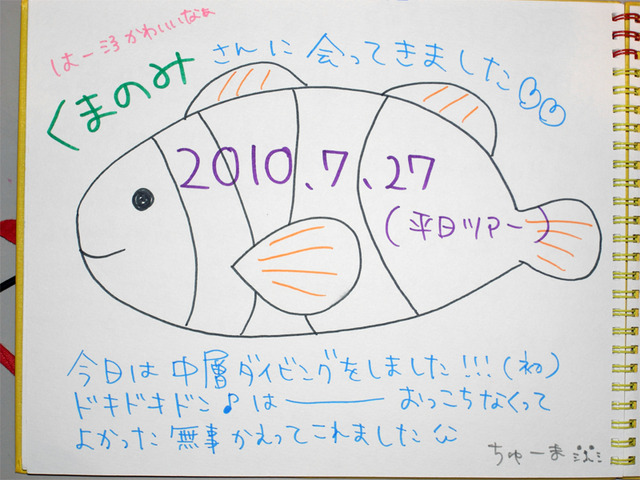 はー浮かわいいなぁ
くまのみさんに会ってきました
2010.7.27
(平日ツアー)
今日は中層ダイビングをしました!!!(初)
ドキドキドン♪はーーー おっこちなくって
よかった無事かえってこれました
ちゅーま